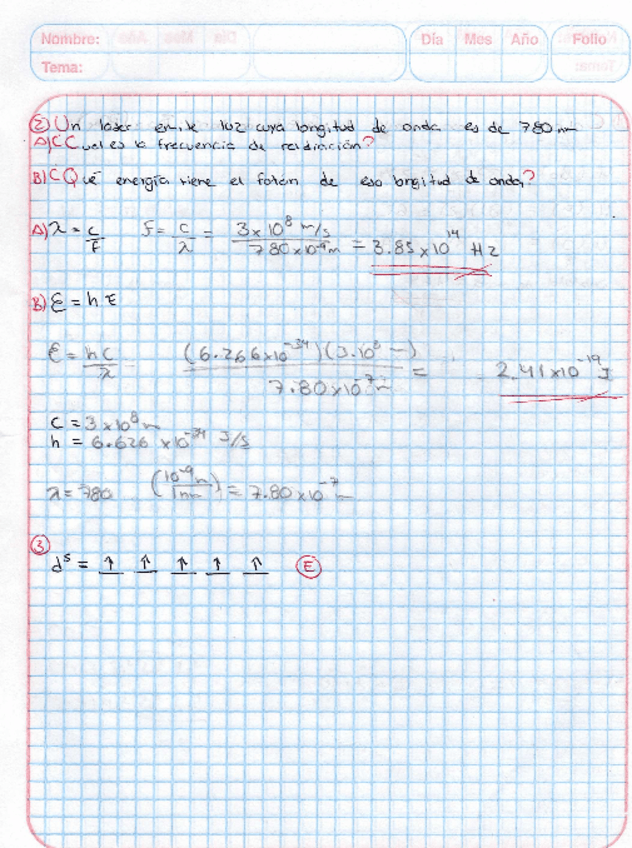 Nombre: Día Mes Año Folio
Tema:
② Un laser emite luz cuya longitud de onda es de 780 nm
A) ¿Cual es la frecuencia de radiación?
B) ¿Qué energía tiene el foton de esa longitud de onda?
A) λ = c/F f = c/λ = 3x10⁸ m/s / 780x10⁻⁹m = 3.85x10¹⁴ Hz
B) E = h
E = hc/λ (6.266x10⁻³⁴)(3.10⁸ ) / 7.80x10⁻⁷m = 2.41x10⁻¹⁹ J
c = 3x10⁸ m
h = 6.626 x10⁻³⁴ J/s
λ = 780 (10⁻⁹m/1nm) = 7.80x10⁻⁷ m
③
d⁵ = ↑ ↑ ↑ ↑ ↑ Ⓔ